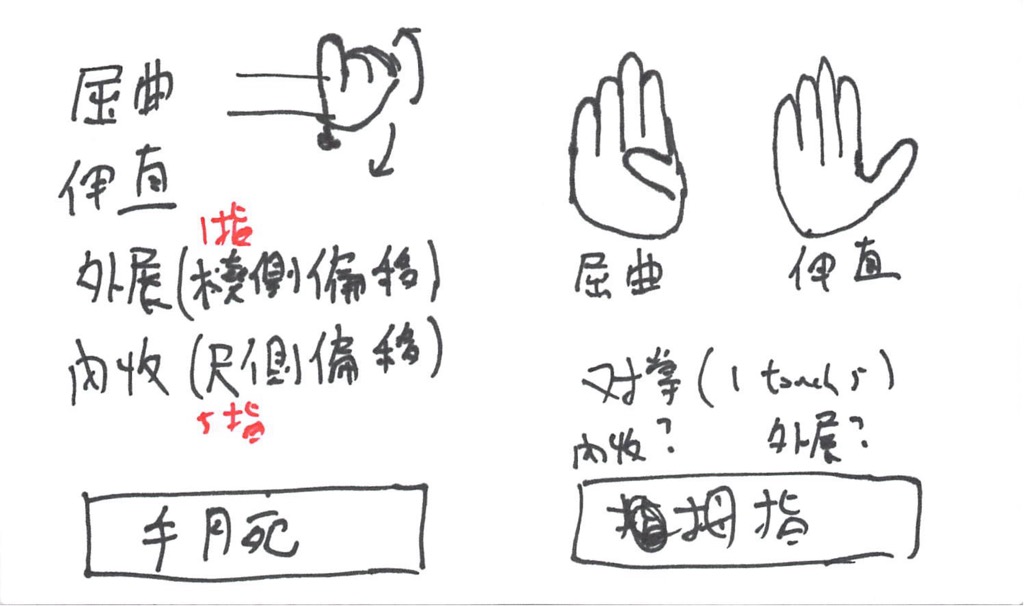 屈曲
伸直
1指
外展(橈側偏移)
內收(尺側偏移)
5指
手腕
屈曲 伸直
对掌(1 touch 5)
內收? 外展?
拇指